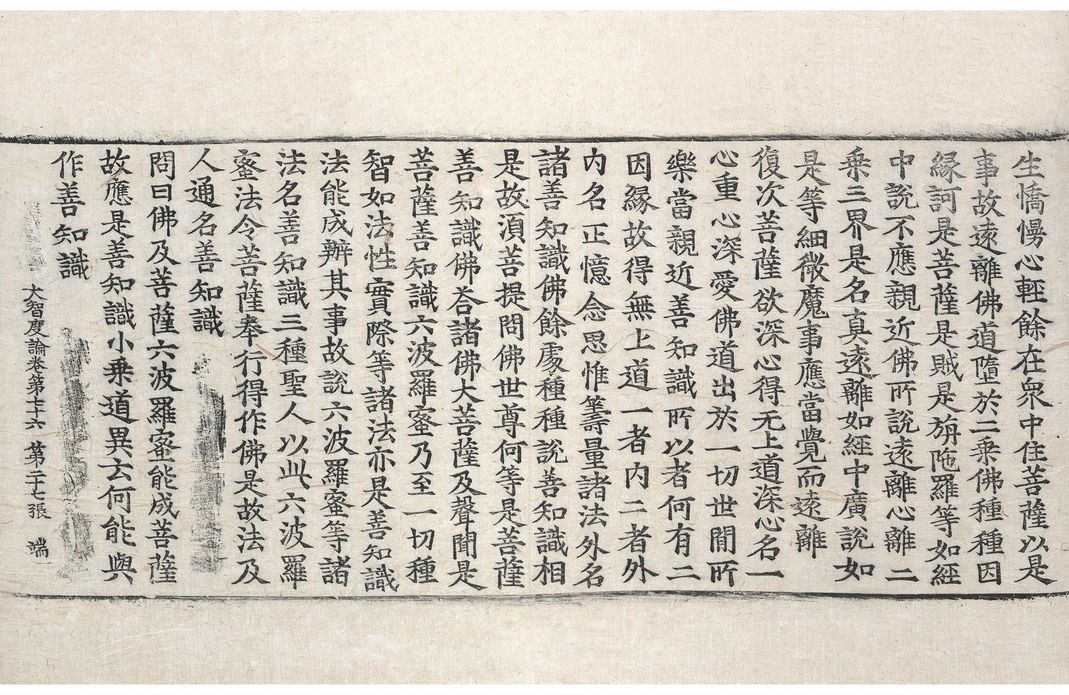 生憍慢心輕餘在衆中住菩薩以是
事故遠離佛道墮於二乗佛種種因
縁訶是菩薩是賊是旃陁羅等如經
中說不應親近佛所說遠離心離二
乗三界是名真遠離如經中廣說如
是等細微魔事應當覺而遠離
復次菩薩欲深心得无上道深心名一
心重心深愛佛道出於一切世間所
樂當親近善知識所以者何有二
因縁故得無上道一者内二者外
内名正憶念思惟籌量諸法外名
諸善知識佛餘處種種說善知識相
是故湏菩提問佛世尊何等是菩薩
善知識佛荅諸佛大菩薩及聲聞是
菩薩善知識六波羅蜜乃至一切種
智如法性實際等諸法亦是善知識
法能成辨其事故說六波羅蜜等諸
法名善知識三種聖人以此六波羅
蜜法令菩薩奉行得作佛是故法及
人通名善知識
問曰佛及菩薩六波羅蜜能成菩薩
故應是善知識小乗道異云何能與
作善知識
大智度論卷第七十六 第二十七張 端